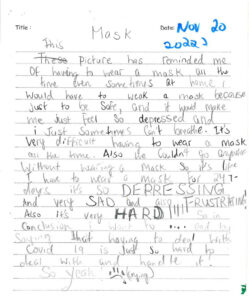 Title: Mask Date: Nov 20
2022
This
These Picture has reminded me
Of having to wear a mask all the
time even sometimes at home
Would have to weak a mask because
just to be safe, and it would make
me Just feel so depressed and
i Just Sometimes Can't breathe. It's
Very difficult having to wear a mask
all the time. Also we Couldn't go anywhere
Without wearing a Mask So it's
I have to wear a mask for 24-7
days it's so DEPRESSING
And very SAD and also FRUSTRATING
Also it's very HARD !!!! So in
Conclusion I want to ... and by
Saying that having to deal with
Covid 19 is Just so hard to
deal with and handle it!
So yeah